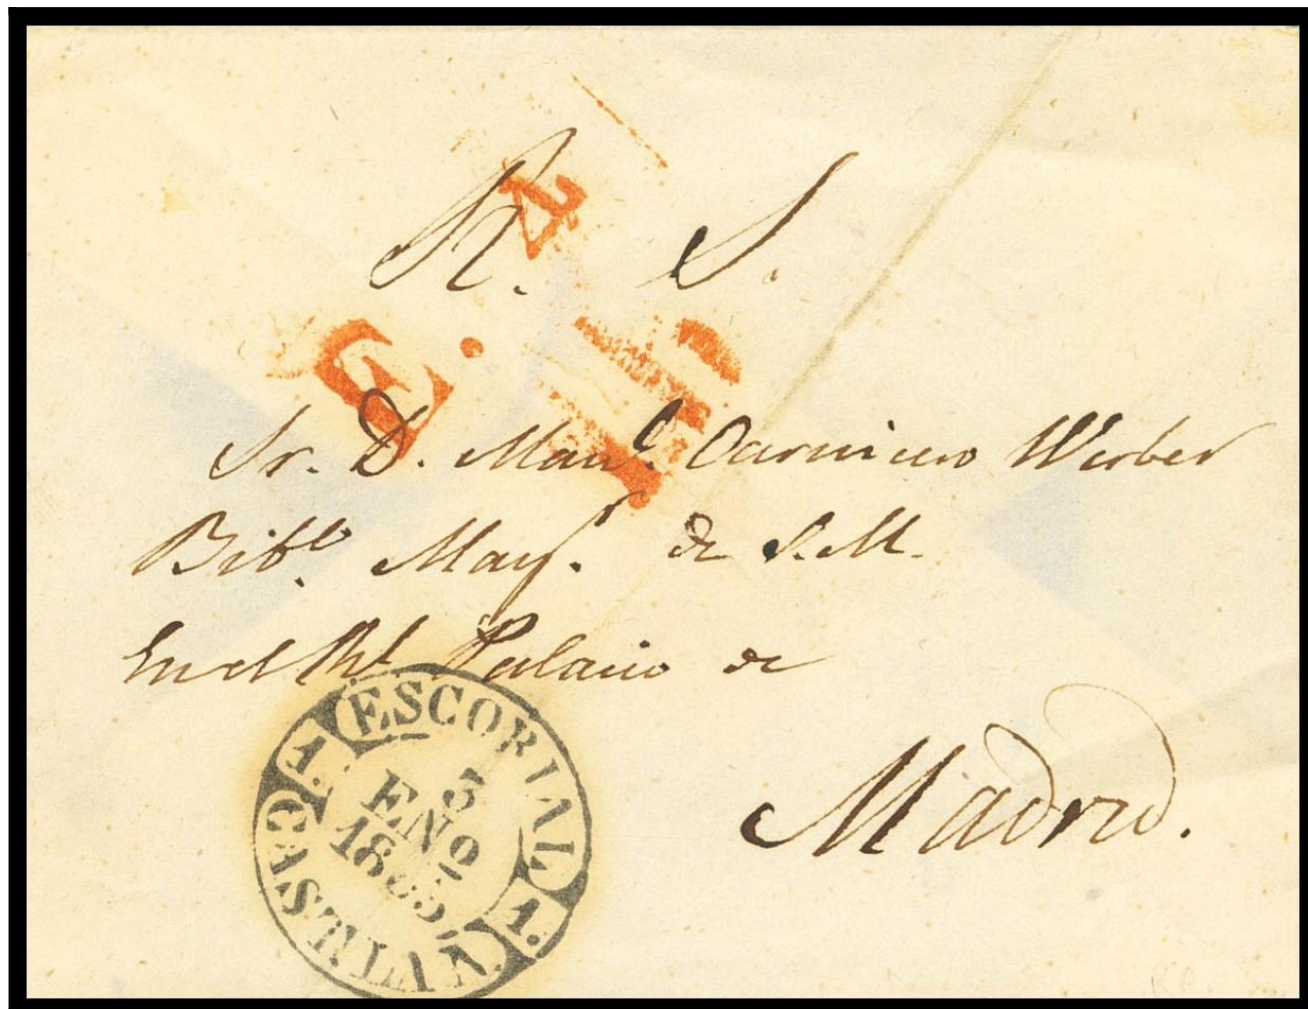 R. S.
Sr. D. Man.l Carnicero Weber
Bibl.o May.r de S.M.
En el Rl. Palacio de
Madrid.
ESCORIAL
1. 1.
ENO
CAST.LA V.